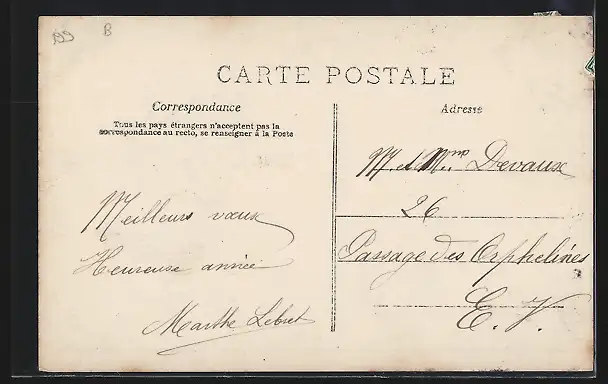 B
CARTE POSTALE
Correspondance
Tous les pays étrangers n'acceptent pas la
correspondance au recto, se renseigner à la Poste
Meilleurs vœux
Heureuse année
Marthe Lebret
Adresse
M. et Mme Devaux
26
Passage des Orphelines
E. V.